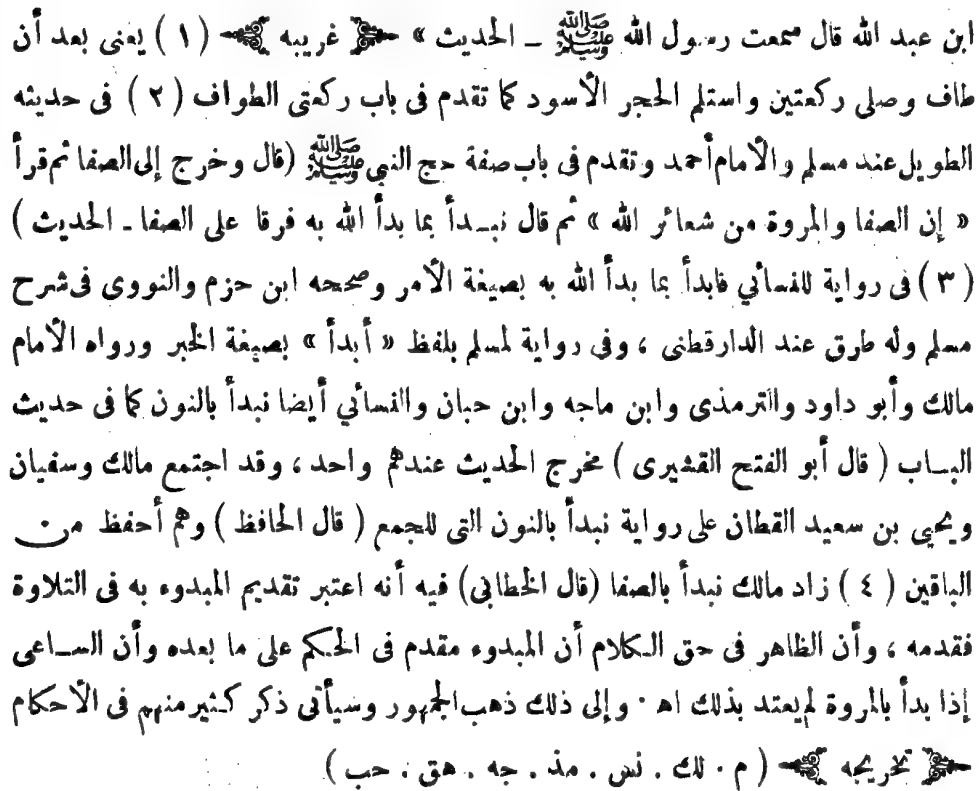 ابن عبد الله قال سمعت رسول الله ﷺ ـ الحديث » ﴿ غريبه ﴾ ( ١ ) يعنى بعد أن
طاف وصلى ركعتين واستلم الحجر الأسود كما تقدم فى باب ركعتى الطواف ( ٢ ) فى حديثه
الطويل عند مسلم والأمام أحمد وتقدم فى باب صفة حج النبى ﷺ (قال وخرج إلى الصفا ثم قرأ
« إن الصفا والمروة من شعائر الله » ثم قال نبـدأ بما بدأ الله به فرقا على الصفا ـ الحديث )
( ٣ ) فى رواية للنسائي فابدأ بما بدأ الله به بصيغة الأمر وصححه ابن حزم والنووى فى شرح
مسلم وله طرق عند الدارقطنى ، وفى رواية لمسلم بلفظ « أبدأ » بصيغة الخبر ورواه الأمام
مالك وأبو داود والترمذى وابن ماجه وابن حبان والنسائي أيضا نبدأ بالنون كما فى حديث
البـاب ( قال أبو الفتح القشيرى ) مخرج الحديث عندهم واحد ، وقد اجتمع مالك وسفيان
ويحيى بن سعيد القطان على رواية نبدأ بالنون التى للجمع ( قال الحافظ ) وهم أحفظ من
الباقين ( ٤ ) زاد مالك نبدأ بالصفا (قال الخطابى) فيه أنه اعتبر تقديم المبدوء به فى التلاوة
فقدمه ، وأن الظاهر فى حق الـكلام أن المبدوء مقدم فى الحـكم على ما بعده وأن السـاعى
إذا بدأ بالمروة لم يعتد بذلك اهـ · وإلى ذلك ذهب الجمهور وسيأتى ذكر كثير منهم فى الأحكام
﴿ تخريجه ﴾ ( م . لك . نس . مذ . جه . هق . حب )